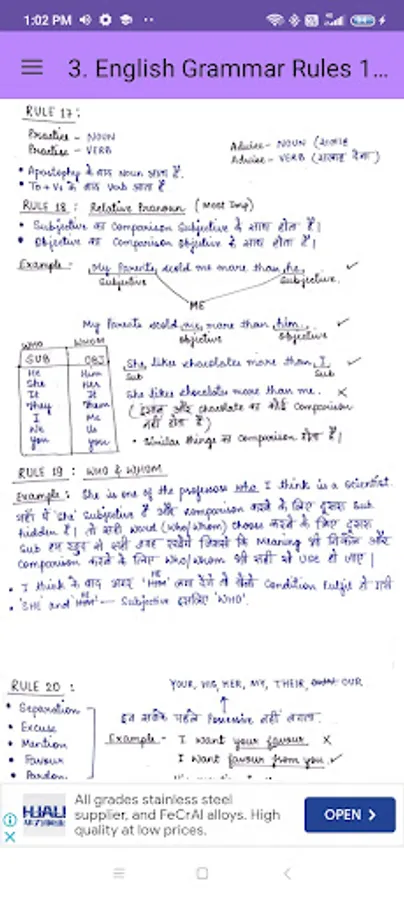 1:02 PM
3. English Grammar Rules 1...
RULE 17:
Practice - NOUN
Practise - VERB
Advice - NOUN (सलाह
Advise - VERB (सलाह देना)
• Apostrophe के बाद Noun आता है.
• To + V1 के बाद Verb आता है.
RULE 18: Relative Pronoun (Most Imp)
• Subjective का Comparison Subjective के साथ होता है।
• Objective का Comparison Objective के साथ होता है।
Example - My Parents scold me more than he. ✓
Subjective Subjective
ME
My Parents scold me more than him. ✓
Objective Objective
WHO WHOM
SUB OBJ
He Him
She Her
It It
They Them
I Me
We Us
You you
She likes chocolates more than I ✓
Sub Sub
She likes chocolate more than me. ×
(इंसान और chocolate का कोई Comparison
नहीं होता है)
• Similar things का Comparison होता है।
RULE 19: WHO & WHOM
Example: She is one of the professors who I think is a scientist.
यहाँ पे 'she' Subjective है और comparison करने के लिए दूसरा Sub
hidden है। तो सही Word (who/whom) choose करने के लिए दूसरा
Sub हम खुद से सही जगह रखेंगे जिससे कि Meaning भी निकले और
Comparison करने के लिए Who/whom भी सही से use हो जाए।
• I think के बाद अगर 'HE' लगा देंगे तो Condition fulfil हो गयी
• 'SHE and HE' — Subjective इसलिए 'WHO'.
RULE 20:
YOUR, HIS, HER, MY, THEIR, OUR
• Separation
• Excuse
• Mention
• Favour
• Pardon
इन सबके पहले Possessive नहीं लगता.
Example - I want your favour ×
I want favour from you ✓
HUALI
All grades stainless steel
supplier, and FeCrAl alloys. High
quality at low prices.
OPEN